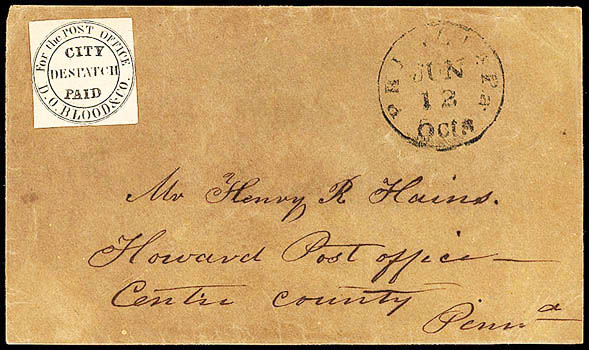 For the POST OFFICE
CITY
DESPATCH
PAID
D.O. BLOOD & CO.
JUN
12
5cts
Mr Henry R Hains.
Howard Post office
Centre county
Penna